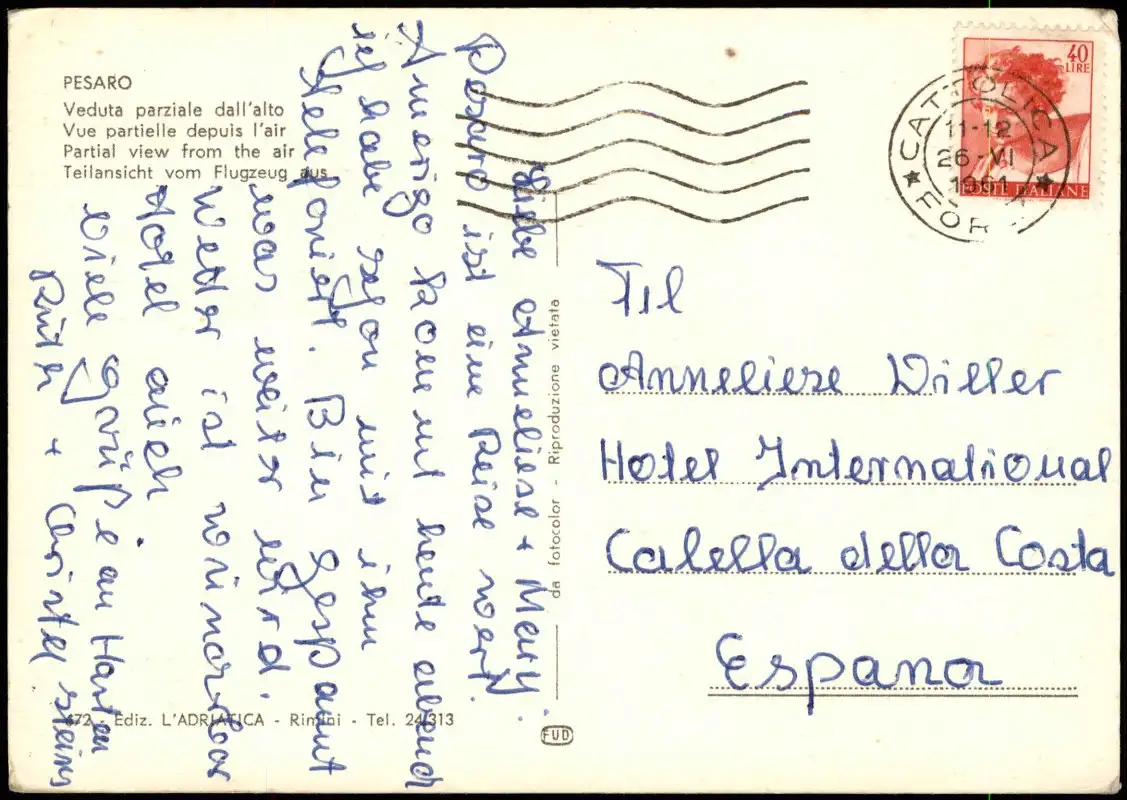 PESARO
Veduta parziale dall'alto
Vue partielle depuis l'air
Partial view from the air
Teilansicht vom Flugzeug aus
Liebe Anneliese + Mary.
Pesaro ist eine Reise wert.
Amerigo kommt heute abend
ich habe schon mit ihm
telefoniert. Bin gespannt
was weiter wird.
Wetter ist wunderbar
Hotel auch.
Viele Grüße an Harten
Ruth + Christel
da fotocolor - Riproduzione vietata
672 - Ediz. L'ADRIATICA - Rimini - Tel. 24313
FUD
40
LIRE
POSTE ITALIANE
CATTOLICA
11-12
26-VI
FOR
Anneliese Willer
Hotel International
Calella della Costa
Espana